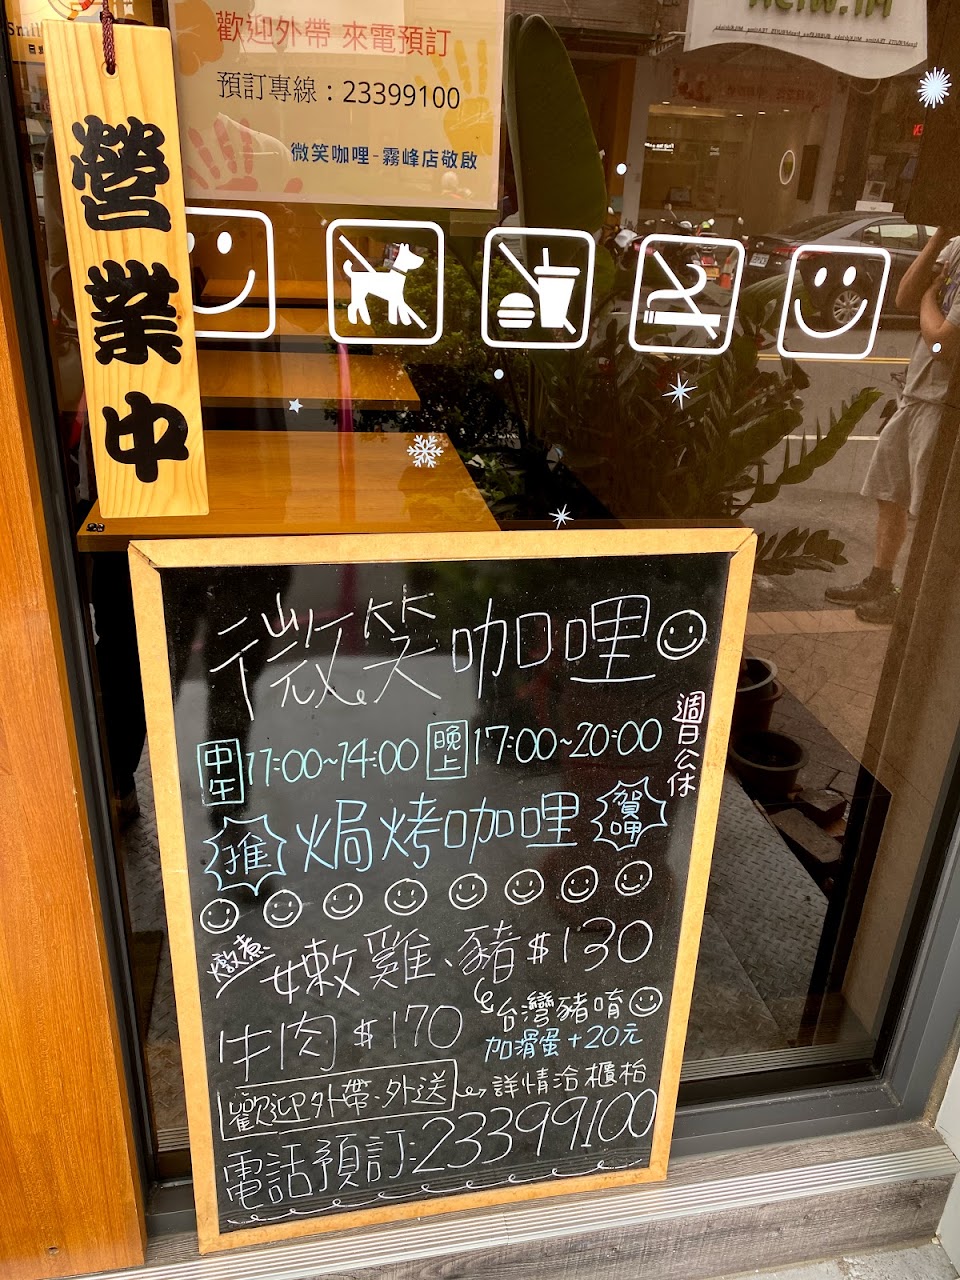 歡迎外帶 來電預訂
預訂專線：23399100
微笑咖哩-霧峰店敬啟
營業中
微笑咖哩
中午 11:00~14:00 晚上 17:00~20:00
週日公休
推 焗烤咖哩 賀呷
燉煮 嫩雞、豬 $130
台灣豬唷
牛肉 $170
加滑蛋+20元
歡迎外帶、外送 詳情洽櫃枱
電話預訂:23399100